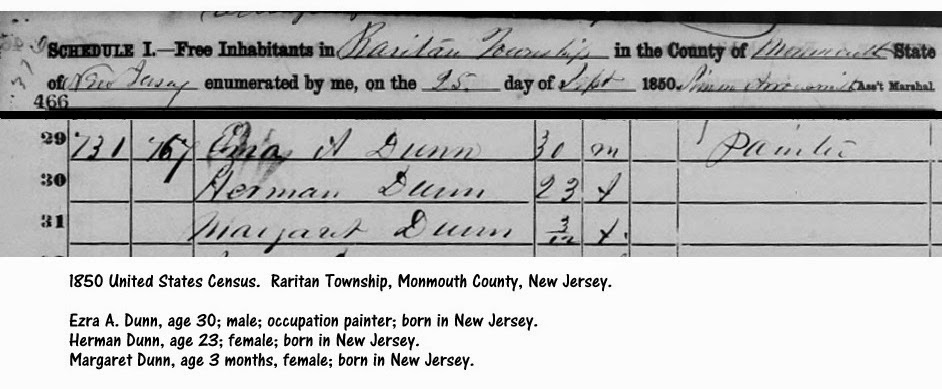 SCHEDULE I.—Free Inhabitants in Raritan Township in the County of Monmouth State
of New Jersey enumerated by me, on the 25 day of Sept 1850. Ass't Marshal
466
29 731 767 Ezra A Dunn 30 m Painter
30 Herman Dunn 23 f
31 Margaret Dunn 3/12 f
1850 United States Census. Raritan Township, Monmouth County, New Jersey.
Ezra A. Dunn, age 30; male; occupation painter; born in New Jersey.
Herman Dunn, age 23; female; born in New Jersey.
Margaret Dunn, age 3 months, female; born in New Jersey.